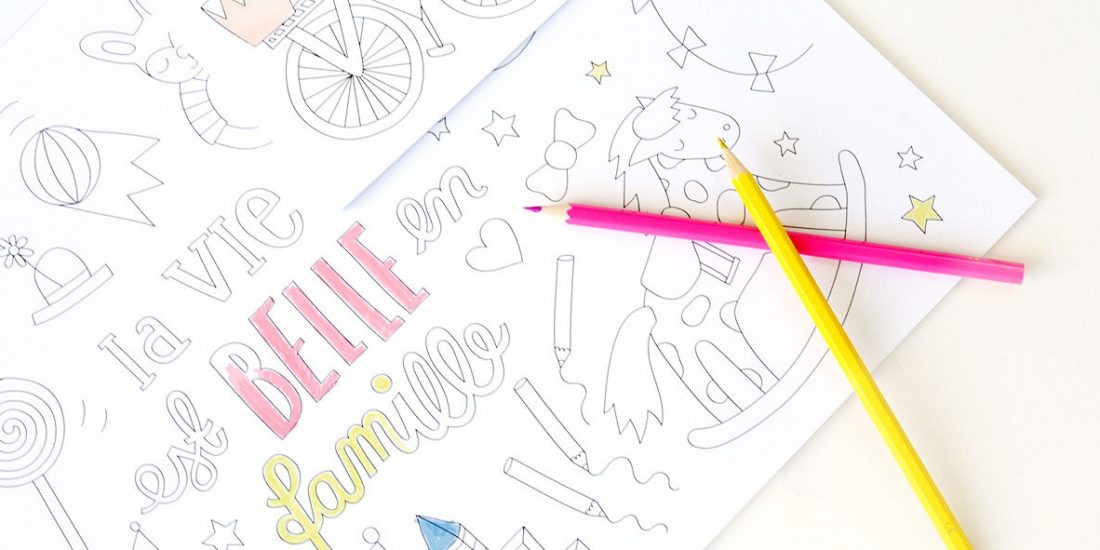 la vie
est BELLE en
famille